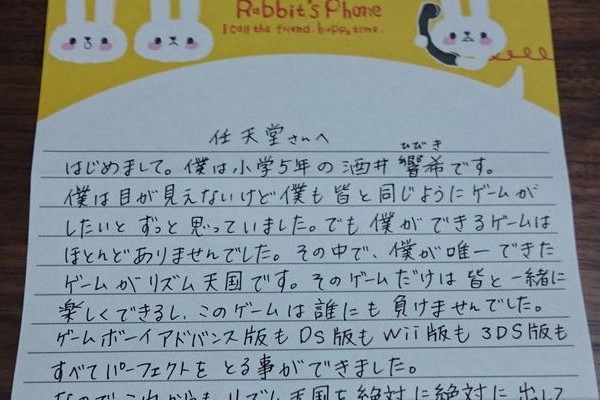 Rabbit's Phone
I call the friend. happy time.
任天堂さんへ
ひびき
はじめまして。僕は小学5年の酒井響希です。
僕は目が見えないけど僕も皆と同じようにゲームが
したいとずっと思っていました。でも僕ができるゲームは
ほとんどありませんでした。その中で、僕が唯一できた
ゲームがリズム天国です。そのゲームだけは皆と一緒に
楽しくできるし、このゲームは誰にも負けませんでした。
ゲームボーイアドバンス版もDS版もWii版も3DS版も
すべてパーフェクトをとる事ができました。
なのでこれからもリズム天国を絶対に絶対に出して